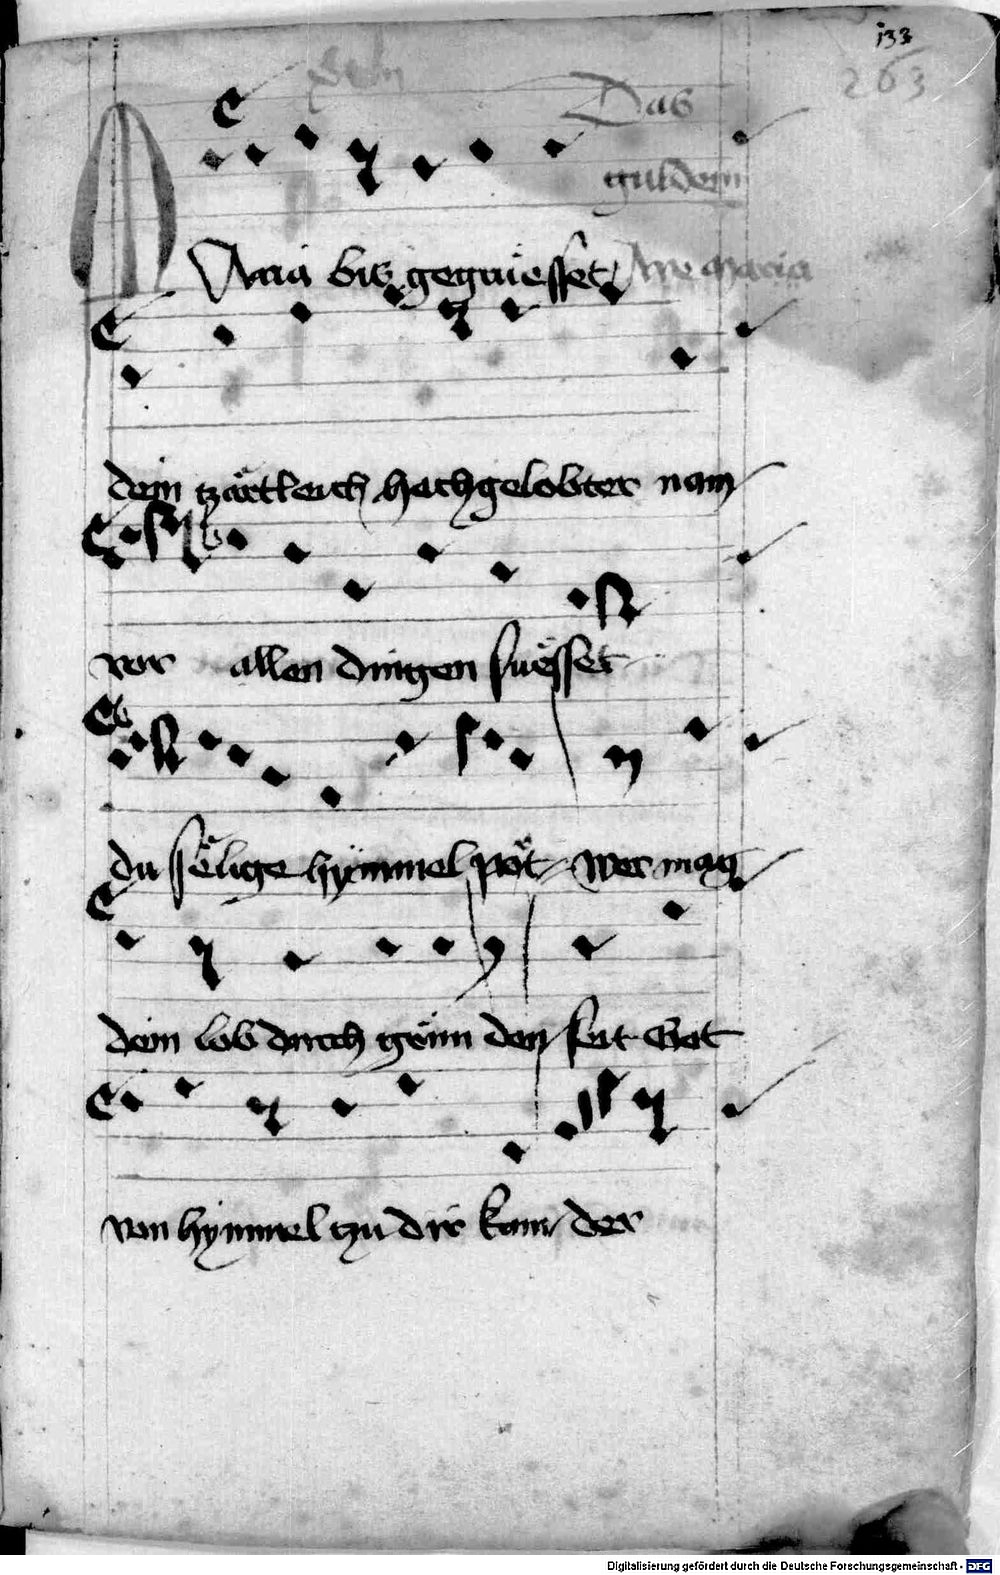 133
263
Das
guldein
Maria bis gegrüesset Ave maria
dein tzartleich hachgelobter nam
vor allen dingen süesset
du sëlige hymmel pöt wer mag
dein lob durch grün den seit Got
von hymmel tzu dir kam der
Digitalisierung gefördert durch die Deutsche Forschungsgemeinschaft - DFG